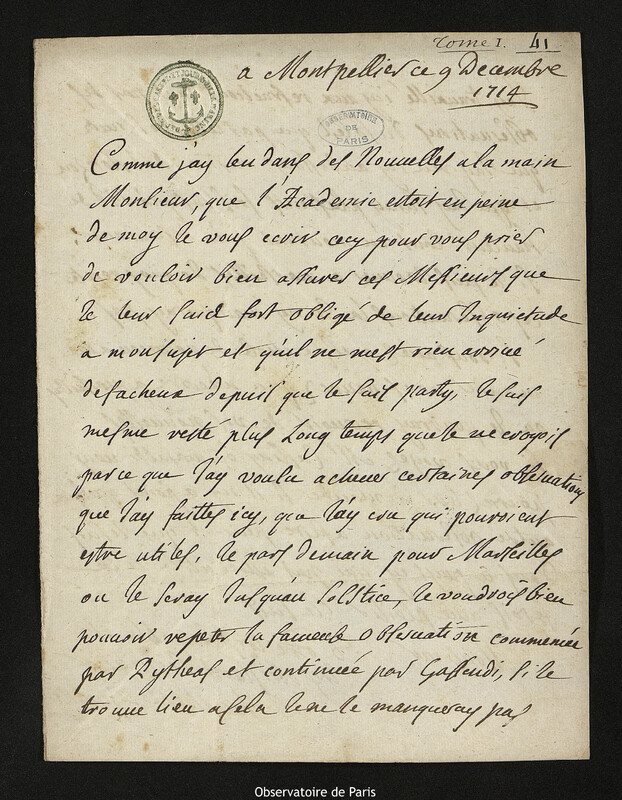 Tome I. 41
a Montpellier ce 9 Decembre
1714
OBSERVATOIRE
DE
PARIS
Comme j'ay leu dans des Nouvelles a la main
Monsieur, que l'Academie estoit en peine
de moy Je vous ecris cecy pour vous prier
de vouloir bien assurer ces Messieurs que
Je leur suis fort obligé de leur Inquietude
a mon sujet et qu'il ne m'est rien arrivé
de facheux depuis que Je suis party, Je suis
mesme resté plus Long temps que Je ne croyois
parce que J'ay voulu achever certaines observations
que J'ay faittes icy, que J'ay cru qui pouvoient
estre utiles, Je pars demain pour Marseilles
ou Je seray Jusqu'au Solstice, Je voudrois bien
pouvoir repeter la fameuse observation commencée
par Pytheas et continuée par Gassendi, si Je
trouve lieu a cela Je ne le manqueray pas
Observatoire de Paris